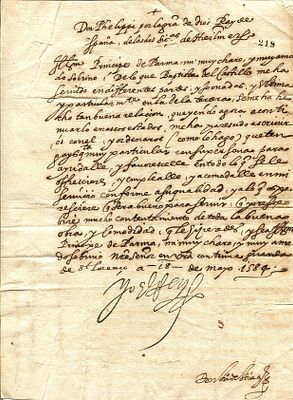 +
Don Phelippe por la gracia de dios Rey de
España, de las dos Sicilias, de Hierusalem &c.
219
Ill.mo Principe de Parma, mi muy charo, y muy amado
sobrino. De lo que Baptista del Castillo me ha
servido en differentes partes, y jornadas, y ultima
y particularmente en la de la tercera, se me ha he
cho tan buena relacion, que yendo agora a conti
nuarlo en essos estados, me ha parescido escriuir
os con el, y ordenaros (como lo hago) que ten
gays muy particular cuydado
ayudalle, y favorescelle en todo lo que se le
offreciere, y emplealle, y acomodalle en mi
servicio conforme a su qualidad, y a lo que
para servir: que
mucho contentamiento de toda la buena
obra, y comodidad, que le
Principe de Parma, mi muy charo, y muy ama
do sobrino nro Señor en su continua guarda
de S.t Lorenço a -18- de mayo 1584
Yo el Rey